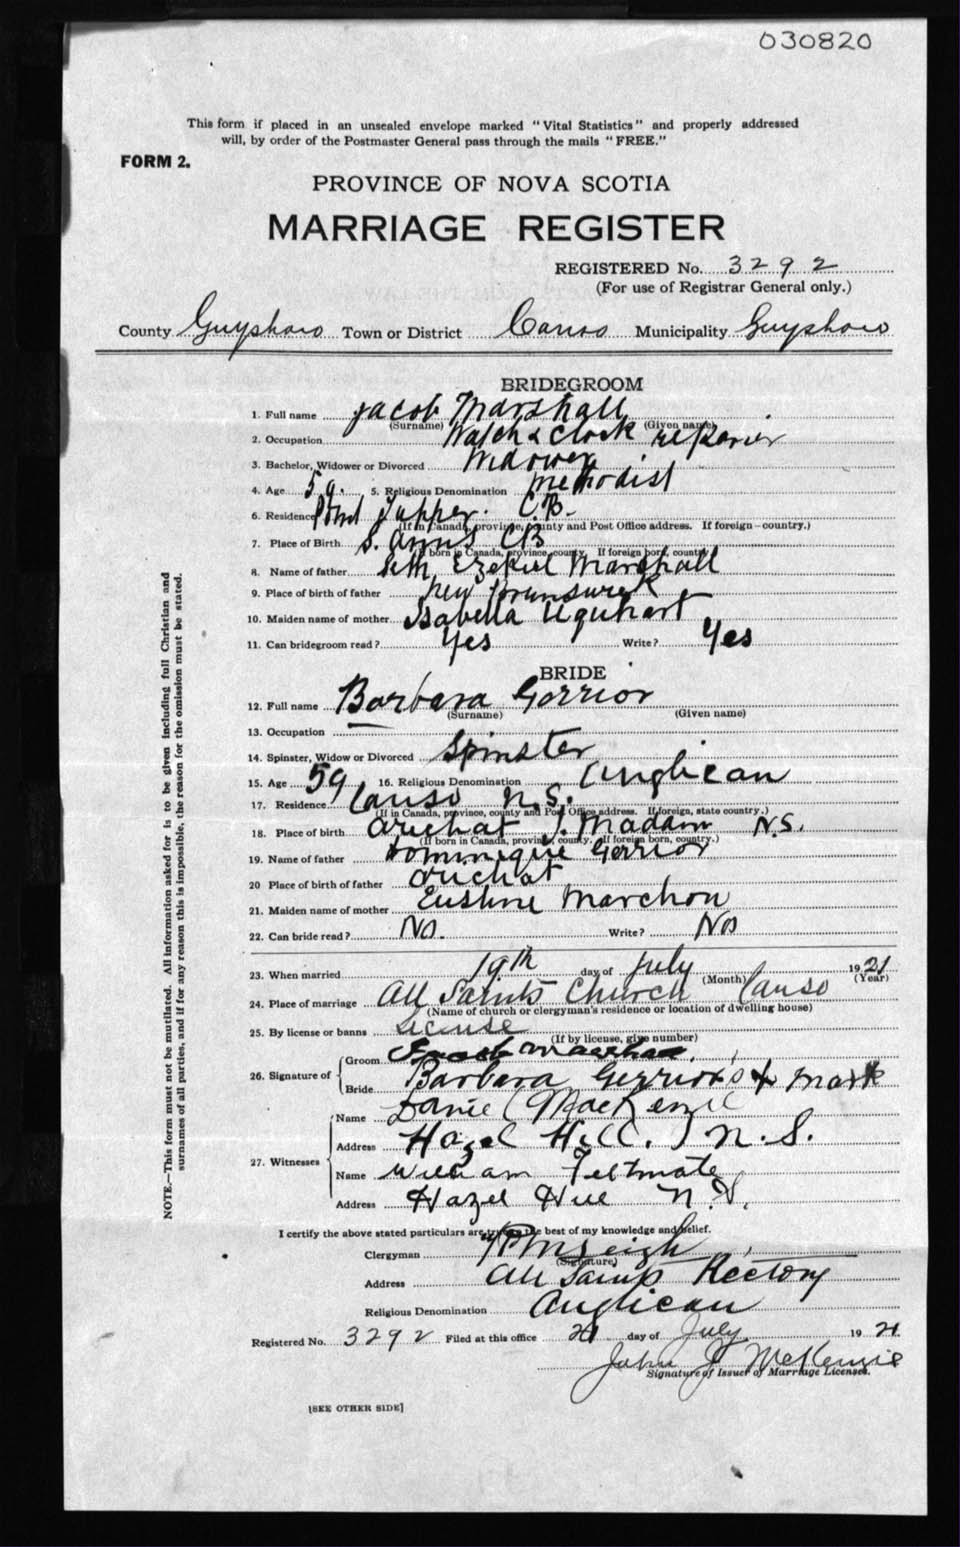 030820
This form if placed in an unsealed envelope marked "Vital Statistics" and properly addressed
will, by order of the Postmaster General pass through the mails "FREE."
FORM 2.
PROVINCE OF NOVA SCOTIA
MARRIAGE REGISTER
REGISTERED No. 3292
(For use of Registrar General only.)
County Guysboro Town or District Canso Municipality Guysboro
BRIDEGROOM
1. Full name Jacob Marshall
(Surname) (Given name)
2. Occupation Watch & Clock repairer
3. Bachelor, Widower or Divorced Widower
4. Age 59. 5. Religious Denomination Methodist
6. Residence Point Tupper. C.B.
(If in Canada, province, county and Post Office address. If foreign—country.)
7. Place of Birth S. Anns CB
(If born in Canada, province, county. If foreign born, country)
8. Name of father Seth Ezekiel Marshall
9. Place of birth of father New Brunswick
10. Maiden name of mother Isabella Urquhart
11. Can bridegroom read? Yes Write? Yes
BRIDE
12. Full name Barbara Gerrior
(Surname) (Given name)
13. Occupation
14. Spinster, Widow or Divorced Spinster
15. Age 59 16. Religious Denomination Anglican
17. Residence Canso N.S.
(If in Canada, province, county and Post Office address. If foreign, state country.)
18. Place of birth Arichat I. Madam N.S.
(If born in Canada, province, county. If foreign born, country.)
19. Name of father Dominique Gerrior
20 Place of birth of father Arichat
21. Maiden name of mother Marchon
22. Can bride read? No. Write? No
23. When married 19th day of July 1921
(Month) (Year)
24. Place of marriage All Saints Church Canso
(Name of church or clergyman's residence or location of dwelling house)
25. By license or banns License
(If by license, give number)
26. Signature of Groom Jacob Marshall
Bride Barbara Gerrior's X mark
27. Witnesses Name Daniel MacKenzie
Address Hazel Hill. N.S.
Name William Feltmate
Address Hazel Hill N.S.
I certify the above stated particulars are true to the best of my knowledge and belief.
Clergyman
(Signature)
Address All Saints Rectory
Religious Denomination Anglican
Registered No. 3292 Filed at this office 21 day of July 1921
John J McKenzie
Signature of Issuer of Marriage Licenses.
[SEE OTHER SIDE]
NOTE.—This form must not be mutilated. All information asked for is to be given including full Christian and
surnames of all parties, and if for any reason this is impossible, the reason for the omission must be stated.